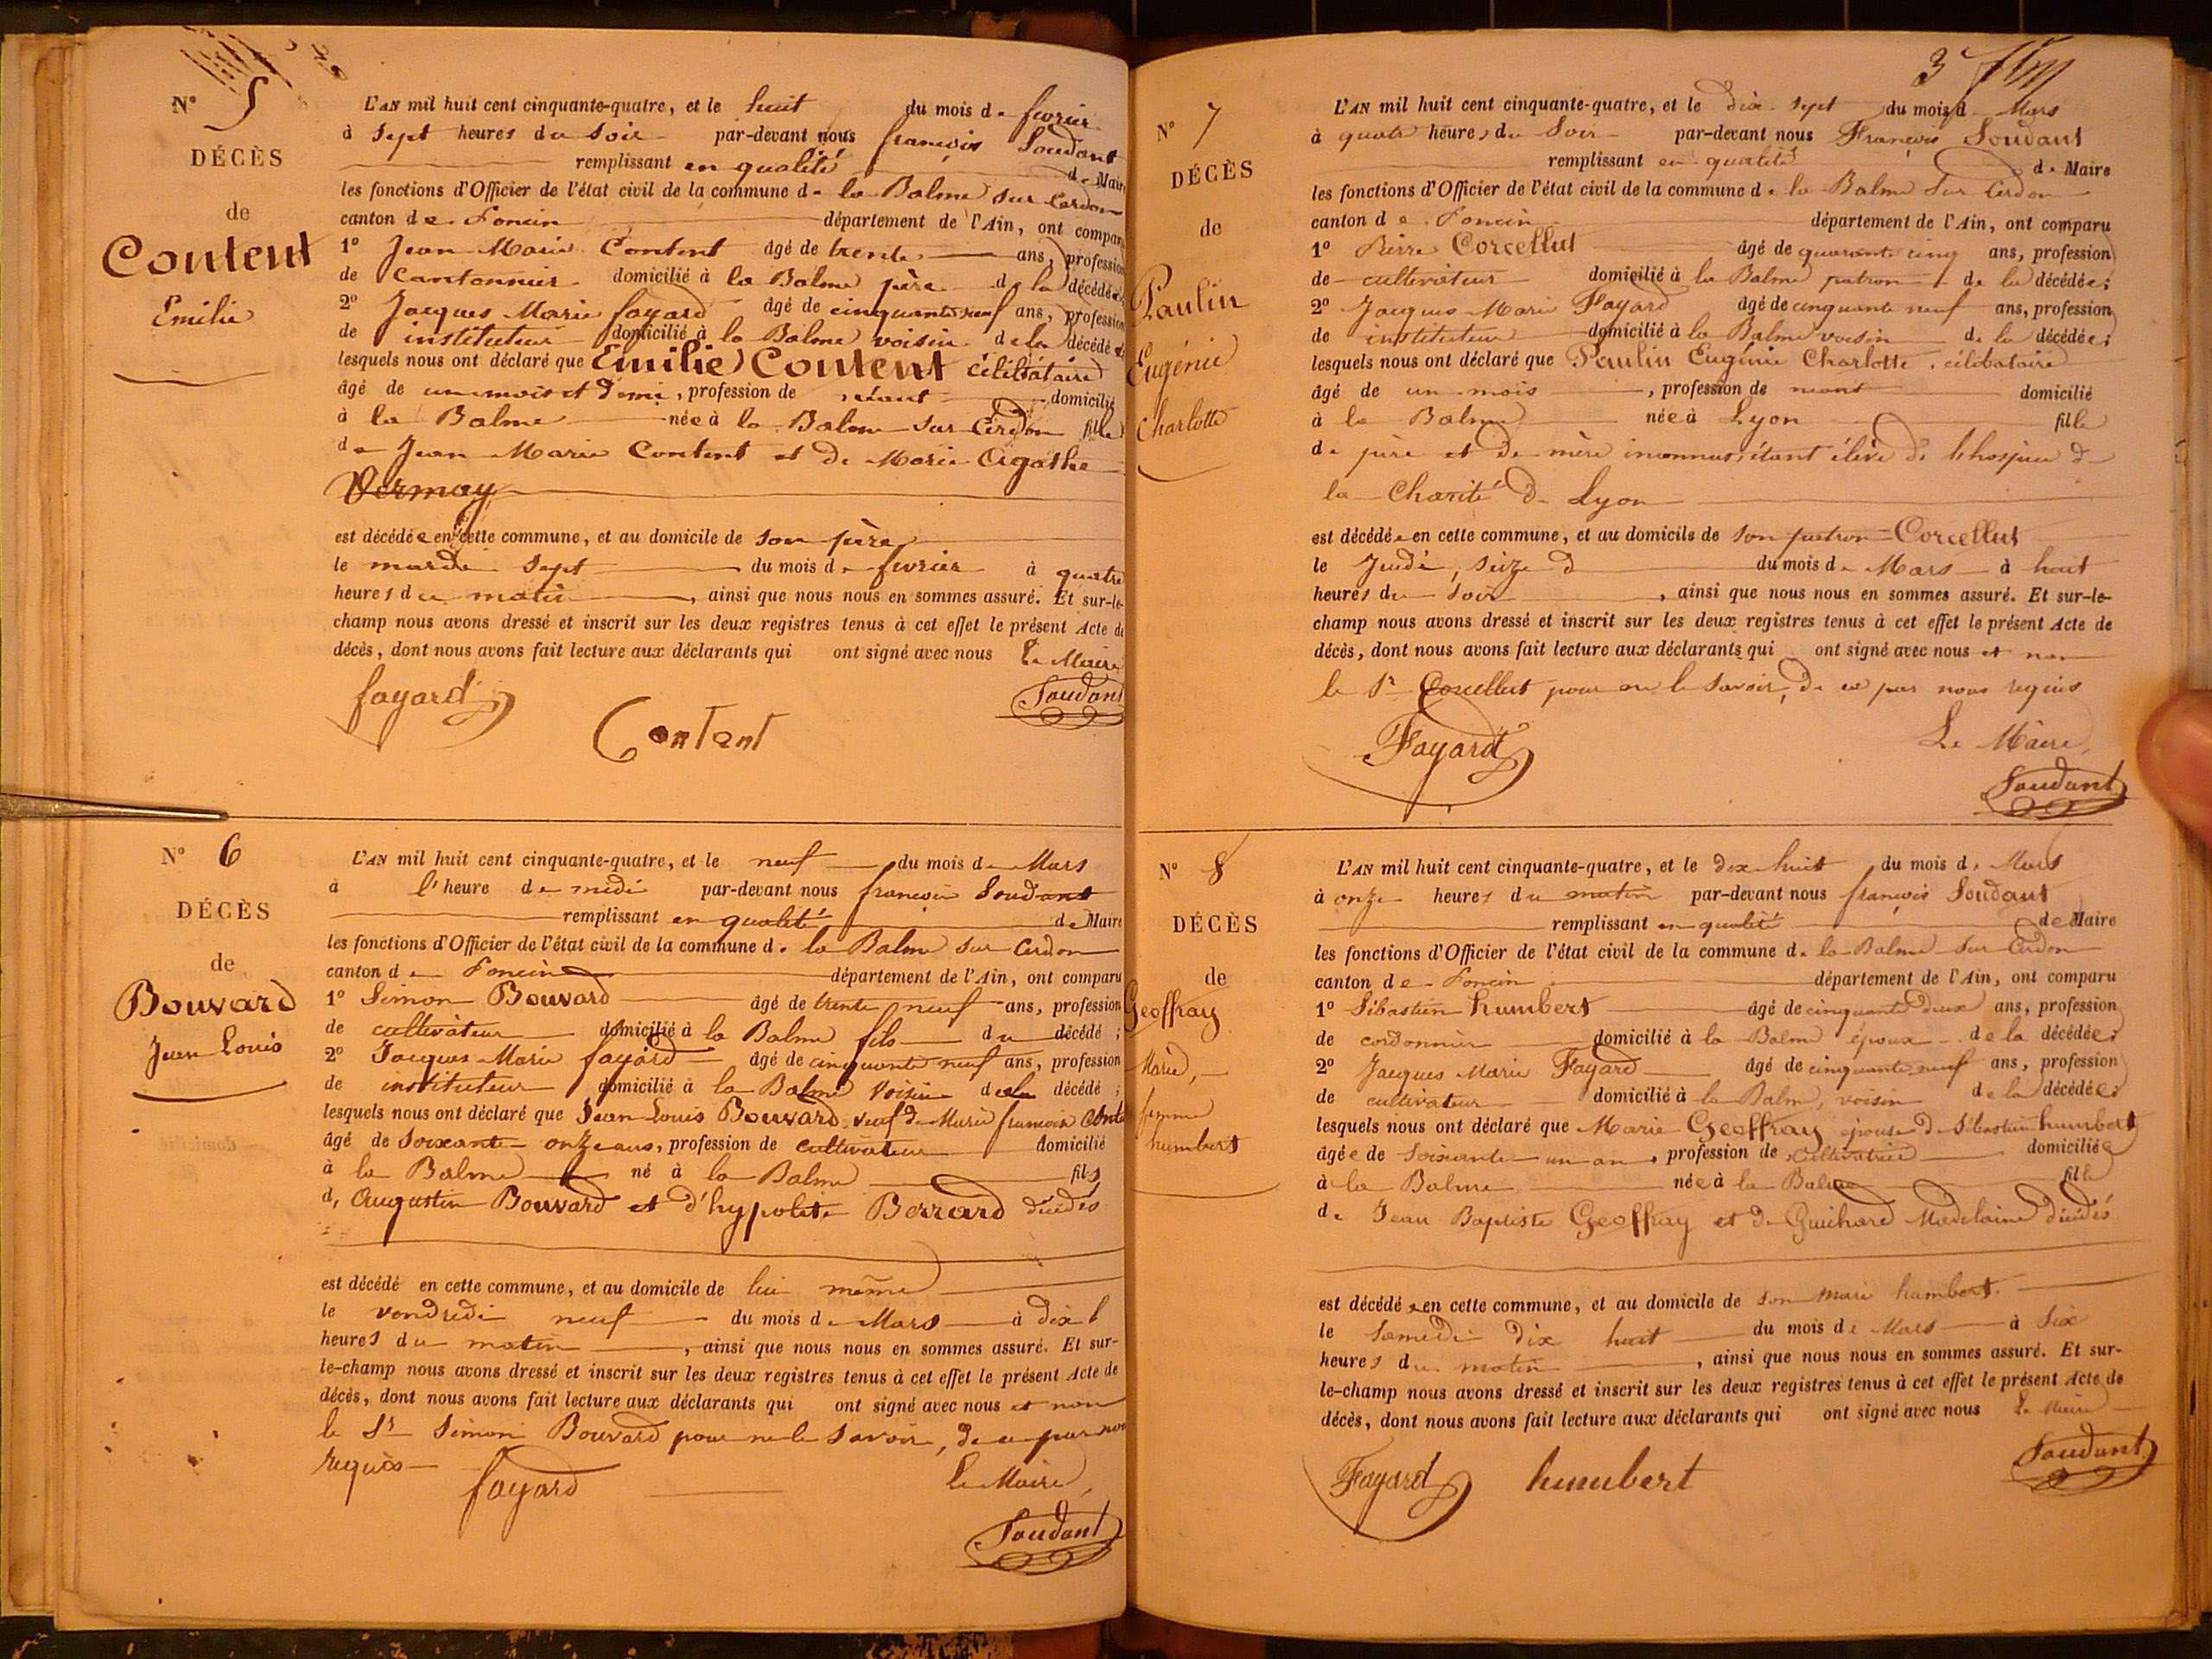 N° 5
DÉCÈS
de
Content
Emilie
L'AN mil huit cent cinquante-quatre, et le huit du mois de fevrier
à sept heures du soir par-devant nous françois Soudant
remplissant en qualité de Maire
les fonctions d'Officier de l'état civil de la commune de la Balme sur Cerdon
canton de Poncin département de l'Ain, ont comparu
1° Jean Marie Content âgé de trente ans, profession
de Cantonnier domicilié à la Balme père de la décédée
2° Jacques Marie fayard âgé de cinquante neuf ans, profession
de instituteur domicilié à la Balme voisin de la décédée
lesquels nous ont déclaré que Emilie Content célibataire
âgé de un mois et demi, profession de néant domicilié
à la Balme née à la Balme sur Cerdon fille
de Jean Marie Content et de Marie Agathe
Vermay
est décédée en cette commune, et au domicile de son père
le mardi sept du mois de fevrier à quatre
heures du matin, ainsi que nous nous en sommes assuré. Et sur-le-
champ nous avons dressé et inscrit sur les deux registres tenus à cet effet le présent Acte de
décès, dont nous avons fait lecture aux déclarants qui ont signé avec nous Le Maire
fayard Content Soudant
N° 6
DÉCÈS
de
Bouvard
Jean Louis
L'AN mil huit cent cinquante-quatre, et le neuf du mois de Mars
à l'heure de midi par-devant nous françois Soudant
remplissant en qualité de Maire
les fonctions d'Officier de l'état civil de la commune de la Balme sur Cerdon
canton de Poncin département de l'Ain, ont comparu
1° Simon Bouvard âgé de trente neuf ans, profession
de cultivateur domicilié à la Balme fils du décédé ;
2° Jacques Marie fayard âgé de cinquante neuf ans, profession
de instituteur domicilié à la Balme voisin dela décédé ;
lesquels nous ont déclaré que Jean Louis Bouvard veuf de Marie francoise
âgé de soixante onze ans, profession de cultivateur domicilié
à la Balme né à la Balme fils
d'Augustin Bouvard et d'hypolite Berrard décédés
est décédé en cette commune, et au domicile de lui même
le vendredi neuf du mois de Mars à dix
heures du matin, ainsi que nous nous en sommes assuré. Et sur-
le-champ nous avons dressé et inscrit sur les deux registres tenus à cet effet le présent Acte de
décès, dont nous avons fait lecture aux déclarants qui ont signé avec nous et non
le Sr Simon Bouvard pour ne le savoir, de ce par nous
requis
fayard Le Maire,
Soudant
3
N° 7
DÉCÈS
de
Paulin
Eugénie
Charlotte
L'AN mil huit cent cinquante-quatre, et le dix-sept du mois de Mars
à quatre heures du soir par-devant nous François Soudant
remplissant en qualité de Maire
les fonctions d'Officier de l'état civil de la commune de la Balme sur Cerdon
canton de Poncin département de l'Ain, ont comparu
1° Pierre Corcellut âgé de quarante cinq ans, profession
de cultivateur domicilié à la Balme patron de la décédée ;
2° Jacques Marie Fayard âgé de cinquante neuf ans, profession
de instituteur domicilié à la Balme voisin de la décédée ;
lesquels nous ont déclaré que Paulin Eugénie Charlotte, célibataire
âgé de un mois, profession de néant domicilié
à la Balme née à Lyon fille
de père et de mère inconnus, étant élève de l'hospice de
la Charité de Lyon
est décédée en cette commune, et au domicile de son patron Corcellut
le Jeudi, seize du mois de Mars à huit
heures du soir, ainsi que nous nous en sommes assuré. Et sur-le-
champ nous avons dressé et inscrit sur les deux registres tenus à cet effet le présent Acte de
décès, dont nous avons fait lecture aux déclarants qui ont signé avec nous et non
le Sr Corcellut pour ne le savoir, de ce par nous requis
Fayard Le Maire,
Soudant
N° 8
DÉCÈS
de
Geoffray
Marie,
femme
humbert
L'AN mil huit cent cinquante-quatre, et le dix huit du mois de Mars
à onze heures du matin par-devant nous françois Soudant
remplissant en qualité de Maire
les fonctions d'Officier de l'état civil de la commune de la Balme sur Cerdon
canton de Poncin département de l'Ain, ont comparu
1° Sébastien humbert âgé de cinquante deux ans, profession
de cordonnier domicilié à la Balme époux de la décédée ;
2° Jacques Marie Fayard âgé de cinquante neuf ans, profession
de cultivateur domicilié à la Balme, voisin de la décédée ;
lesquels nous ont déclaré que Marie Geoffray épouse de Sébastien humbert
âgée de soixante un an, profession de cultivatrice domiciliée
à la Balme née à la Balme fille
de Jean Baptiste Geoffray et de Guichard Madelaine décédés
est décédée en cette commune, et au domicile de son mari humbert.
le samedi dix huit du mois de Mars à six
heures du matin, ainsi que nous nous en sommes assuré. Et sur-
le-champ nous avons dressé et inscrit sur les deux registres tenus à cet effet le présent Acte de
décès, dont nous avons fait lecture aux déclarants qui ont signé avec nous Le Maire
Fayard humbert Soudant